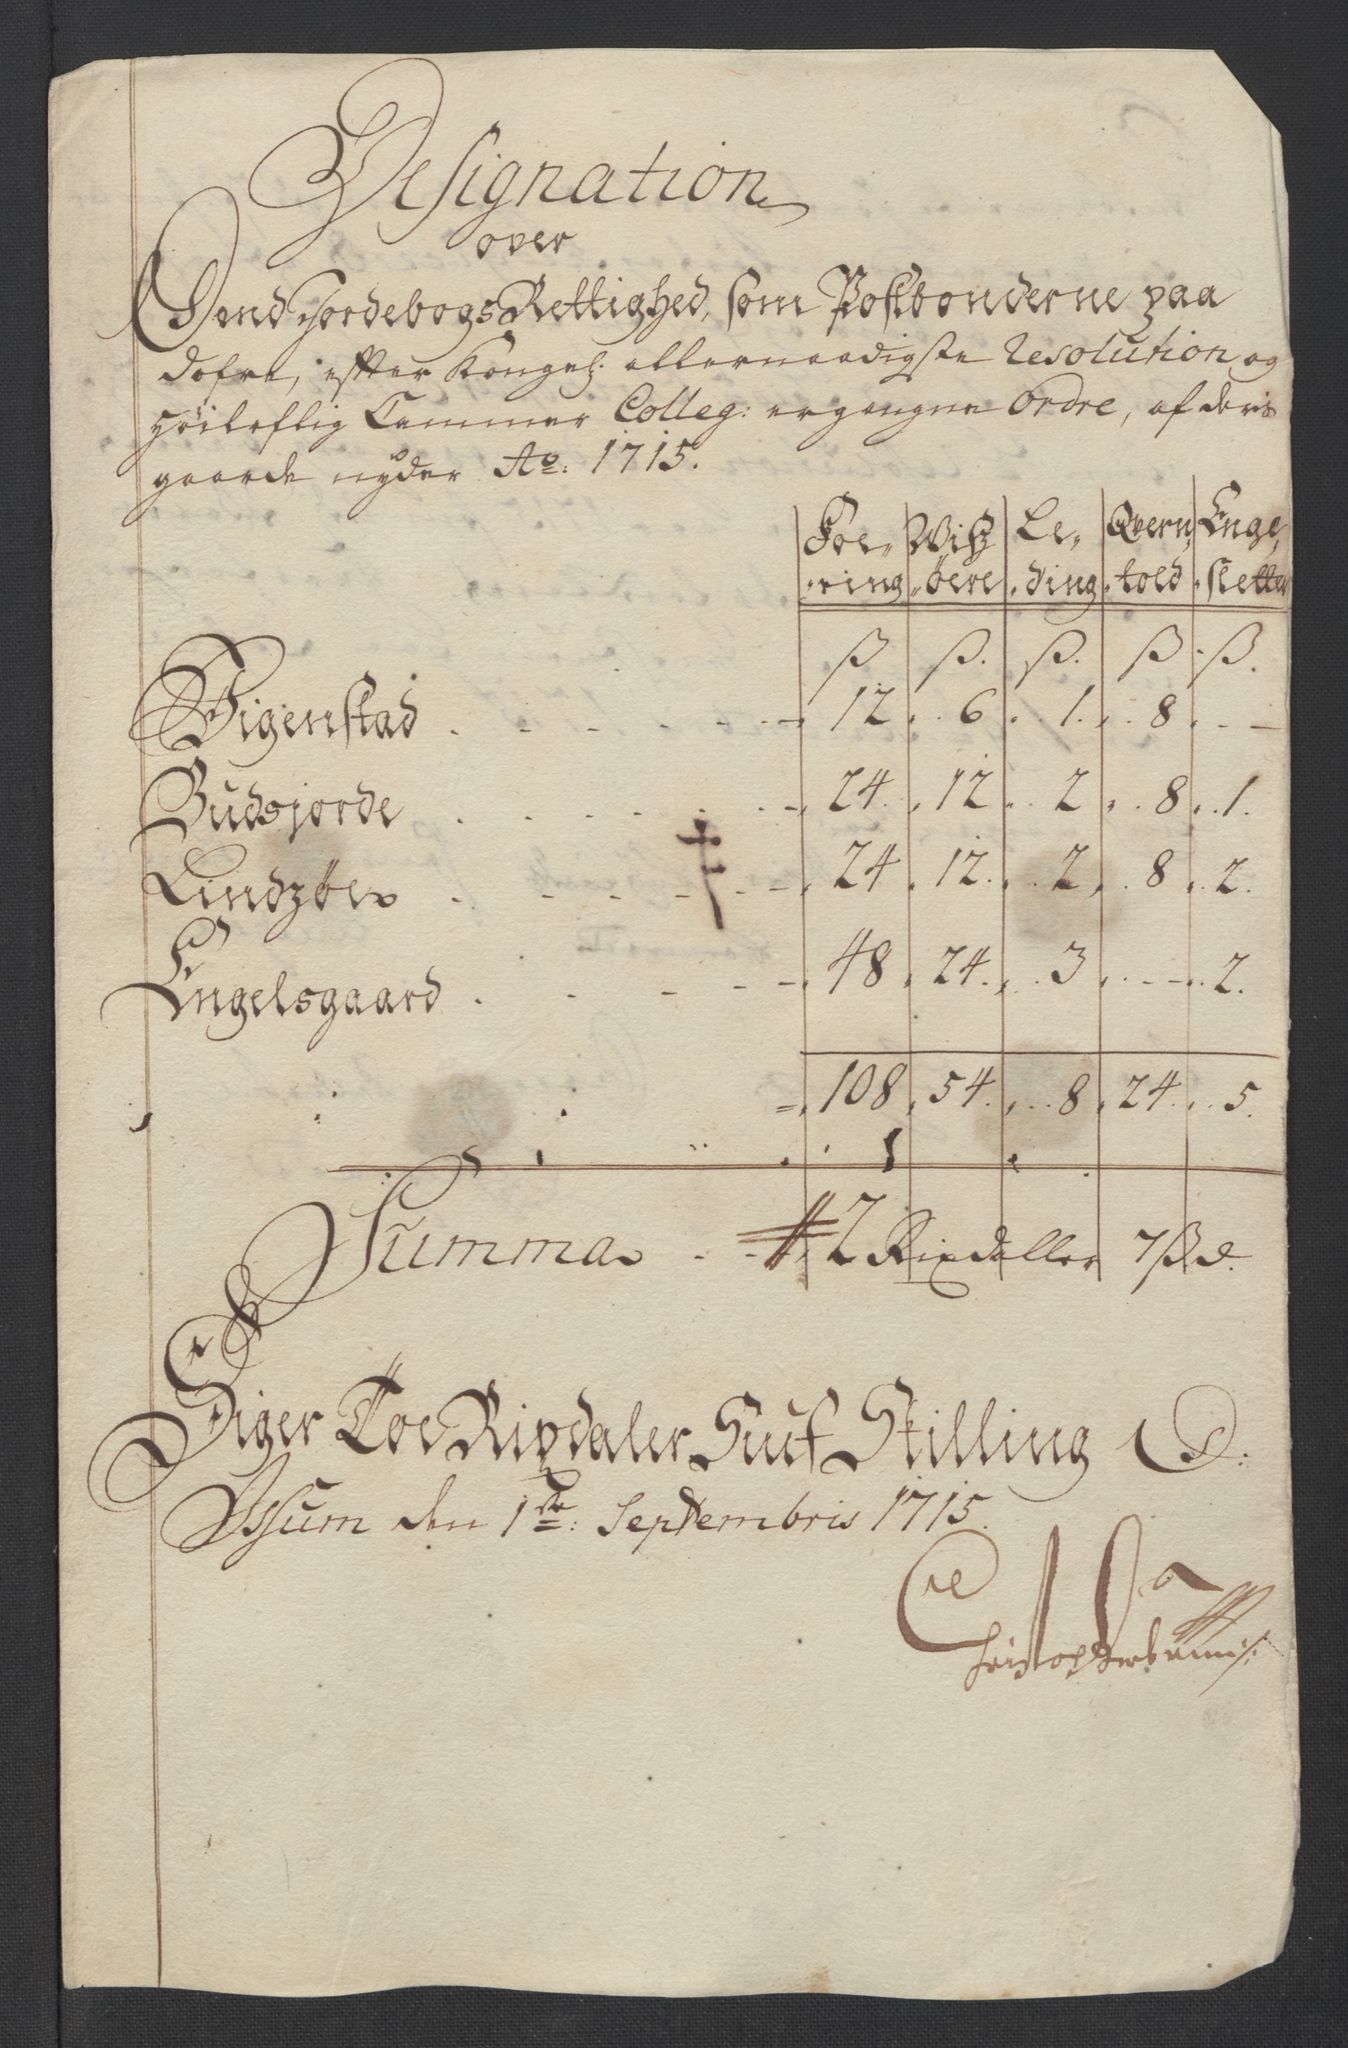 Designation
over
Dend Jordebogs Rettighed, som Postbønderne paa
Dofre, efter Kongel: allernaadigste Resolution og
Höiloflig Cammer Colleg: ergangne Ordre, af deris
gaarde nyder Ao: 1715.
Foe„ Wiß Le„ Qvern„ Enge„
„ring „öere „ding „told „sletter
ß ß. ß. ß ß.
Tigenstad 12 6 1 8 –
Budsjorde 24 12 2 8 1.
Lindzöe 24 12 2 8 2.
Engelsgaard 48 24 3 – 2.
108 54 8 24 5.
Summa 2 Rixdaller 7 ß d.
Siger Toe Rixdaler Siuf Skilling D:
Issum den 1ste: Septembris 1715.